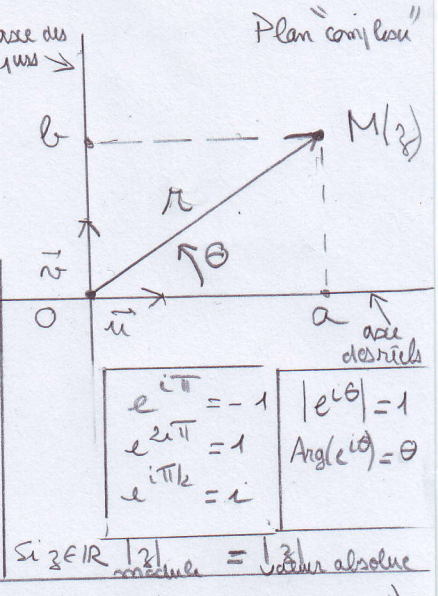 axe des
Plan "complexe"
b
M(z)
r
θ
v⃗
O
u⃗
a
axe
des réels
e^{iπ} = -1
e^{2iπ} = 1
e^{iπ/2} = i
|e^{iθ}| = 1
Arg(e^{iθ}) = θ
Si z∈IR |z| module = |z| valeur absolue